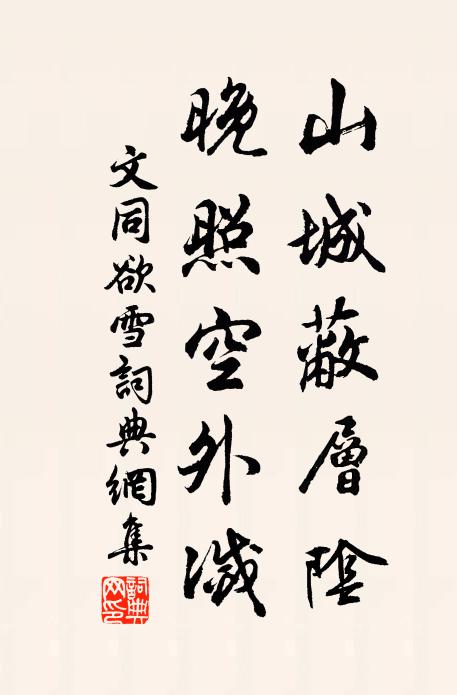 山城蔽層陰
晚照空外滅
文同欲雪詞典網集
詞典網印